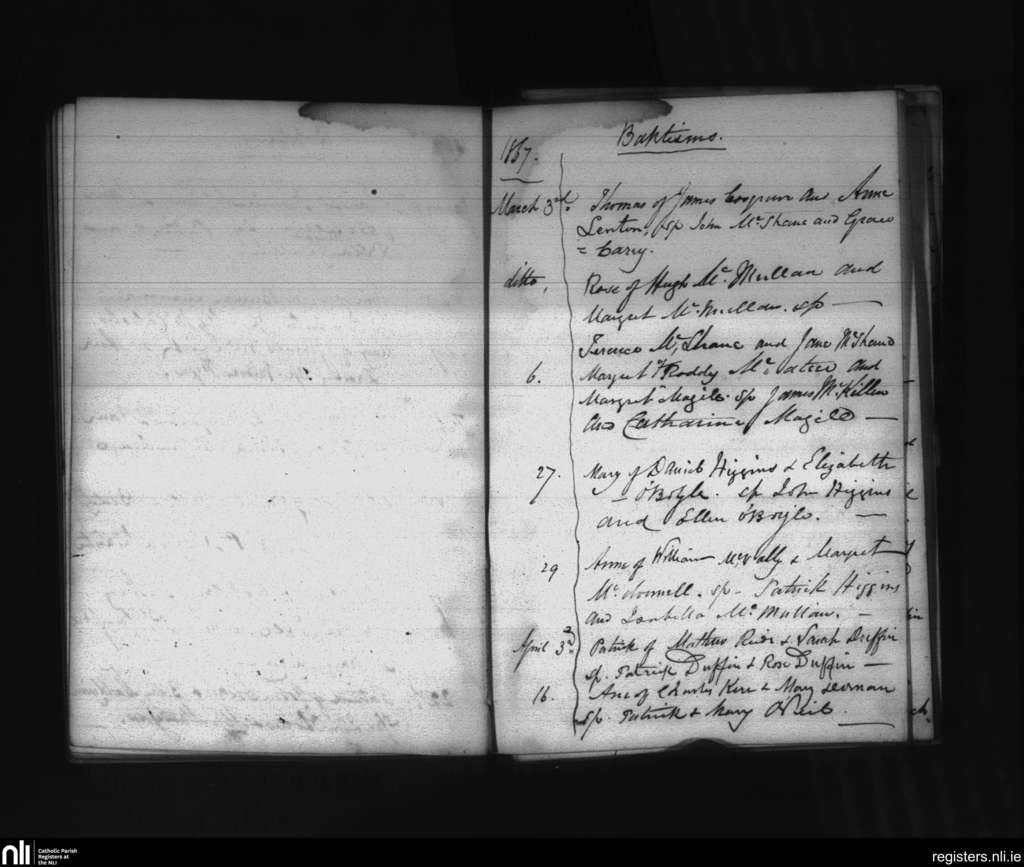 Baptisms.
1867.
March 3rd. Thomas of James Cosgrove and Anne
Lenton, sp John McShane and Grace
= Carey.
ditto, Rose of Hugh McMullan and
Margret McMullan. sp —
Terence McShane and Jane McShane
6. Margret of Roddy McAteer and
Margret Magill. sp James McKillen
and Catharine Magill —
27. Mary of Daniel Higgins & Elizabeth
- O'Boyle. sp John Higgins
and Ellen O'Boyle. —
29 Anne of William McNally & Margret
McDonnell. sp- Patrick Higgins
and Isabella McMullan. —
April 3rd Patrick of Matthew & Sarah Duffin
sp. Patrick Duffin & Rose Duffin —
16. Anne of Charles Kerr & Mary
sp. Patrick & Mary O'Neil. —
nli Catholic Parish
Registers at
the NLI
registers.nli.ie